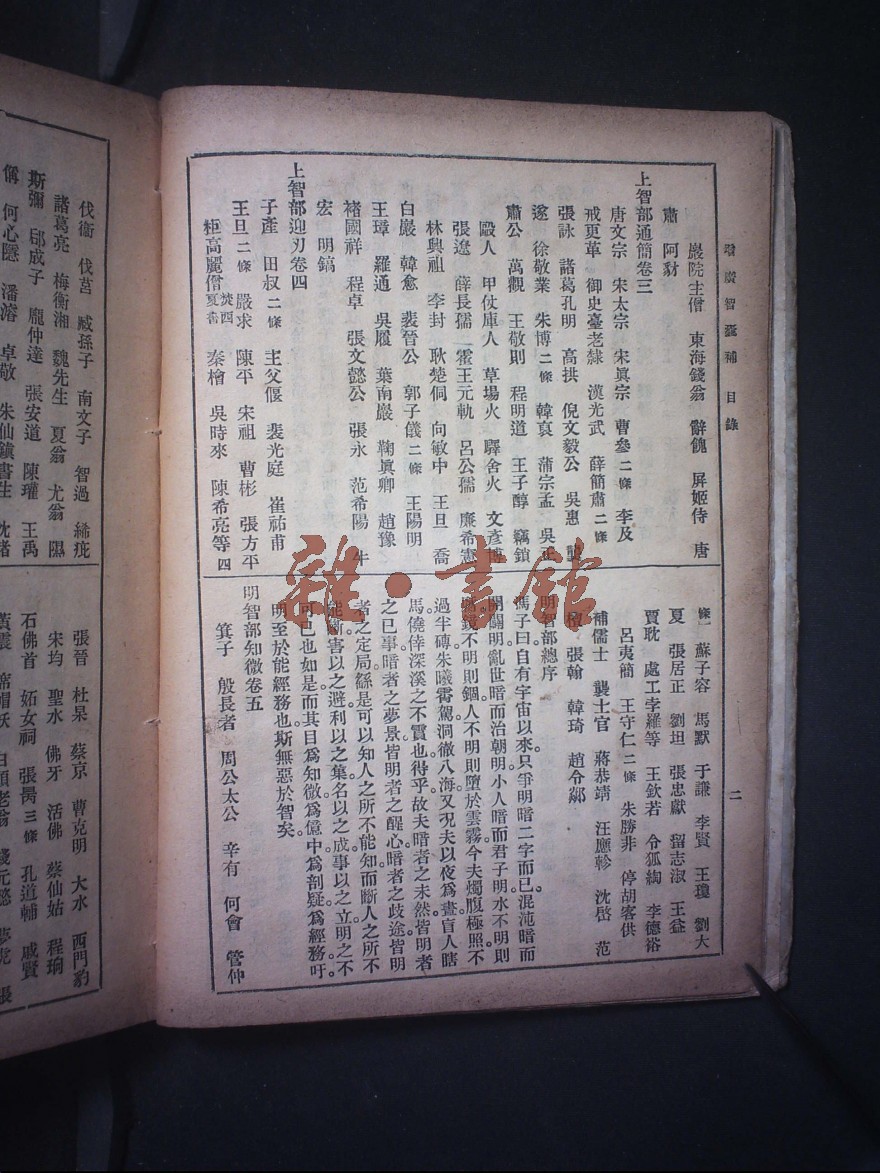 增廣智囊補 目錄 二
巖院主僧 東海錢翁 辭餽 屏姬侍 唐
肅 阿豺
上智部通簡卷三
唐文宗 宋太宗 宋眞宗 曹參二條 李及
戒更革 御史臺老隸 漢光武 薛簡肅二條
張詠 諸葛孔明 高拱 倪文毅公 吳惠 龔
遂 徐敬業 朱博二條 韓裒 蒲宗孟 吳正
肅公 萬觀 王敬則 程明道 王子醇 竊鎖
毆人 甲仗庫人 草場火 驛舍火 文彥博
張遼 薛長孺 霍王元軌 呂公孺 廉希憲
林興祖 李封 耿楚侗 向敏中 王旦 喬
白巖 韓愈 裴晉公 郭子儀二條 王陽明
王璋 羅通 吳履 葉南巖 鞠眞卿 趙豫
褚國祥 程卓 張文懿公 張永 范希陽 牛
宏 明鎬
上智部迎刃卷四
子產 田叔二條 主父偃 裴光庭 崔祐甫
王旦二條 嚴求 陳平 宋祖 曹彬 張方平
秦檜 吳時來 陳希亮等四
條 蘇子容 馬默 于謙 李賢 王瓊 劉大
夏 張居正 劉坦 張忠獻 留志淑 王益
賈耽 處工孛羅等 王欽若 令狐綯 李德裕
呂夷簡 王守仁二條 朱勝非 停胡客供
補儒士 襲土官 蔣恭靖 汪應軫 沈啓 范
張翰 韓琦 趙令郯
明智部總序
馮子曰自有宇宙以來只爭明暗二字而已混沌暗而
開闢明亂世暗而治朝明小人暗而君子明水不明則
鏡不明則錮人不明則墮於雲霧今夫燭腹極照不
過半磚朱曦霄駕洞徹八海又況夫以夜爲晝盲人瞎
馬僥倖深溪之不霣也得乎故夫暗者之未然皆明者
之已事暗者之夢景皆明者之醒心暗者之歧途皆明
者之定局繇是可以知人之所不能知而斷人之所不
能斷害以之避利以之集名以之成事以之立明之不
可已也如是而其目爲知微爲億中爲剖疑爲經務吁
明至於能經務也斯無惡於智矣
明智部知微卷五
箕子 殷長者 周公太公 辛有 何曾 管仲
伐衞 伐莒 臧孫子 南文子 智過 絺疵
諸葛亮 梅衡湘 魏先生 夏翁 尤翁 隰
斯彌 郈成子 龐仲達 張安道 陳瓘 王禹
偁 何心隱 潘濬 卓敬 朱仙鎭書生 沈諸
張晉 杜杲 蔡京 曹克明 大水 西門豹
宋均 聖水 佛牙 活佛 蔡仙姑 程珦
石佛首 妬女祠 張昺三條 孔道輔 戚賢
黃震 席帽妖 白頭老翁 錢元懿
雜·書館